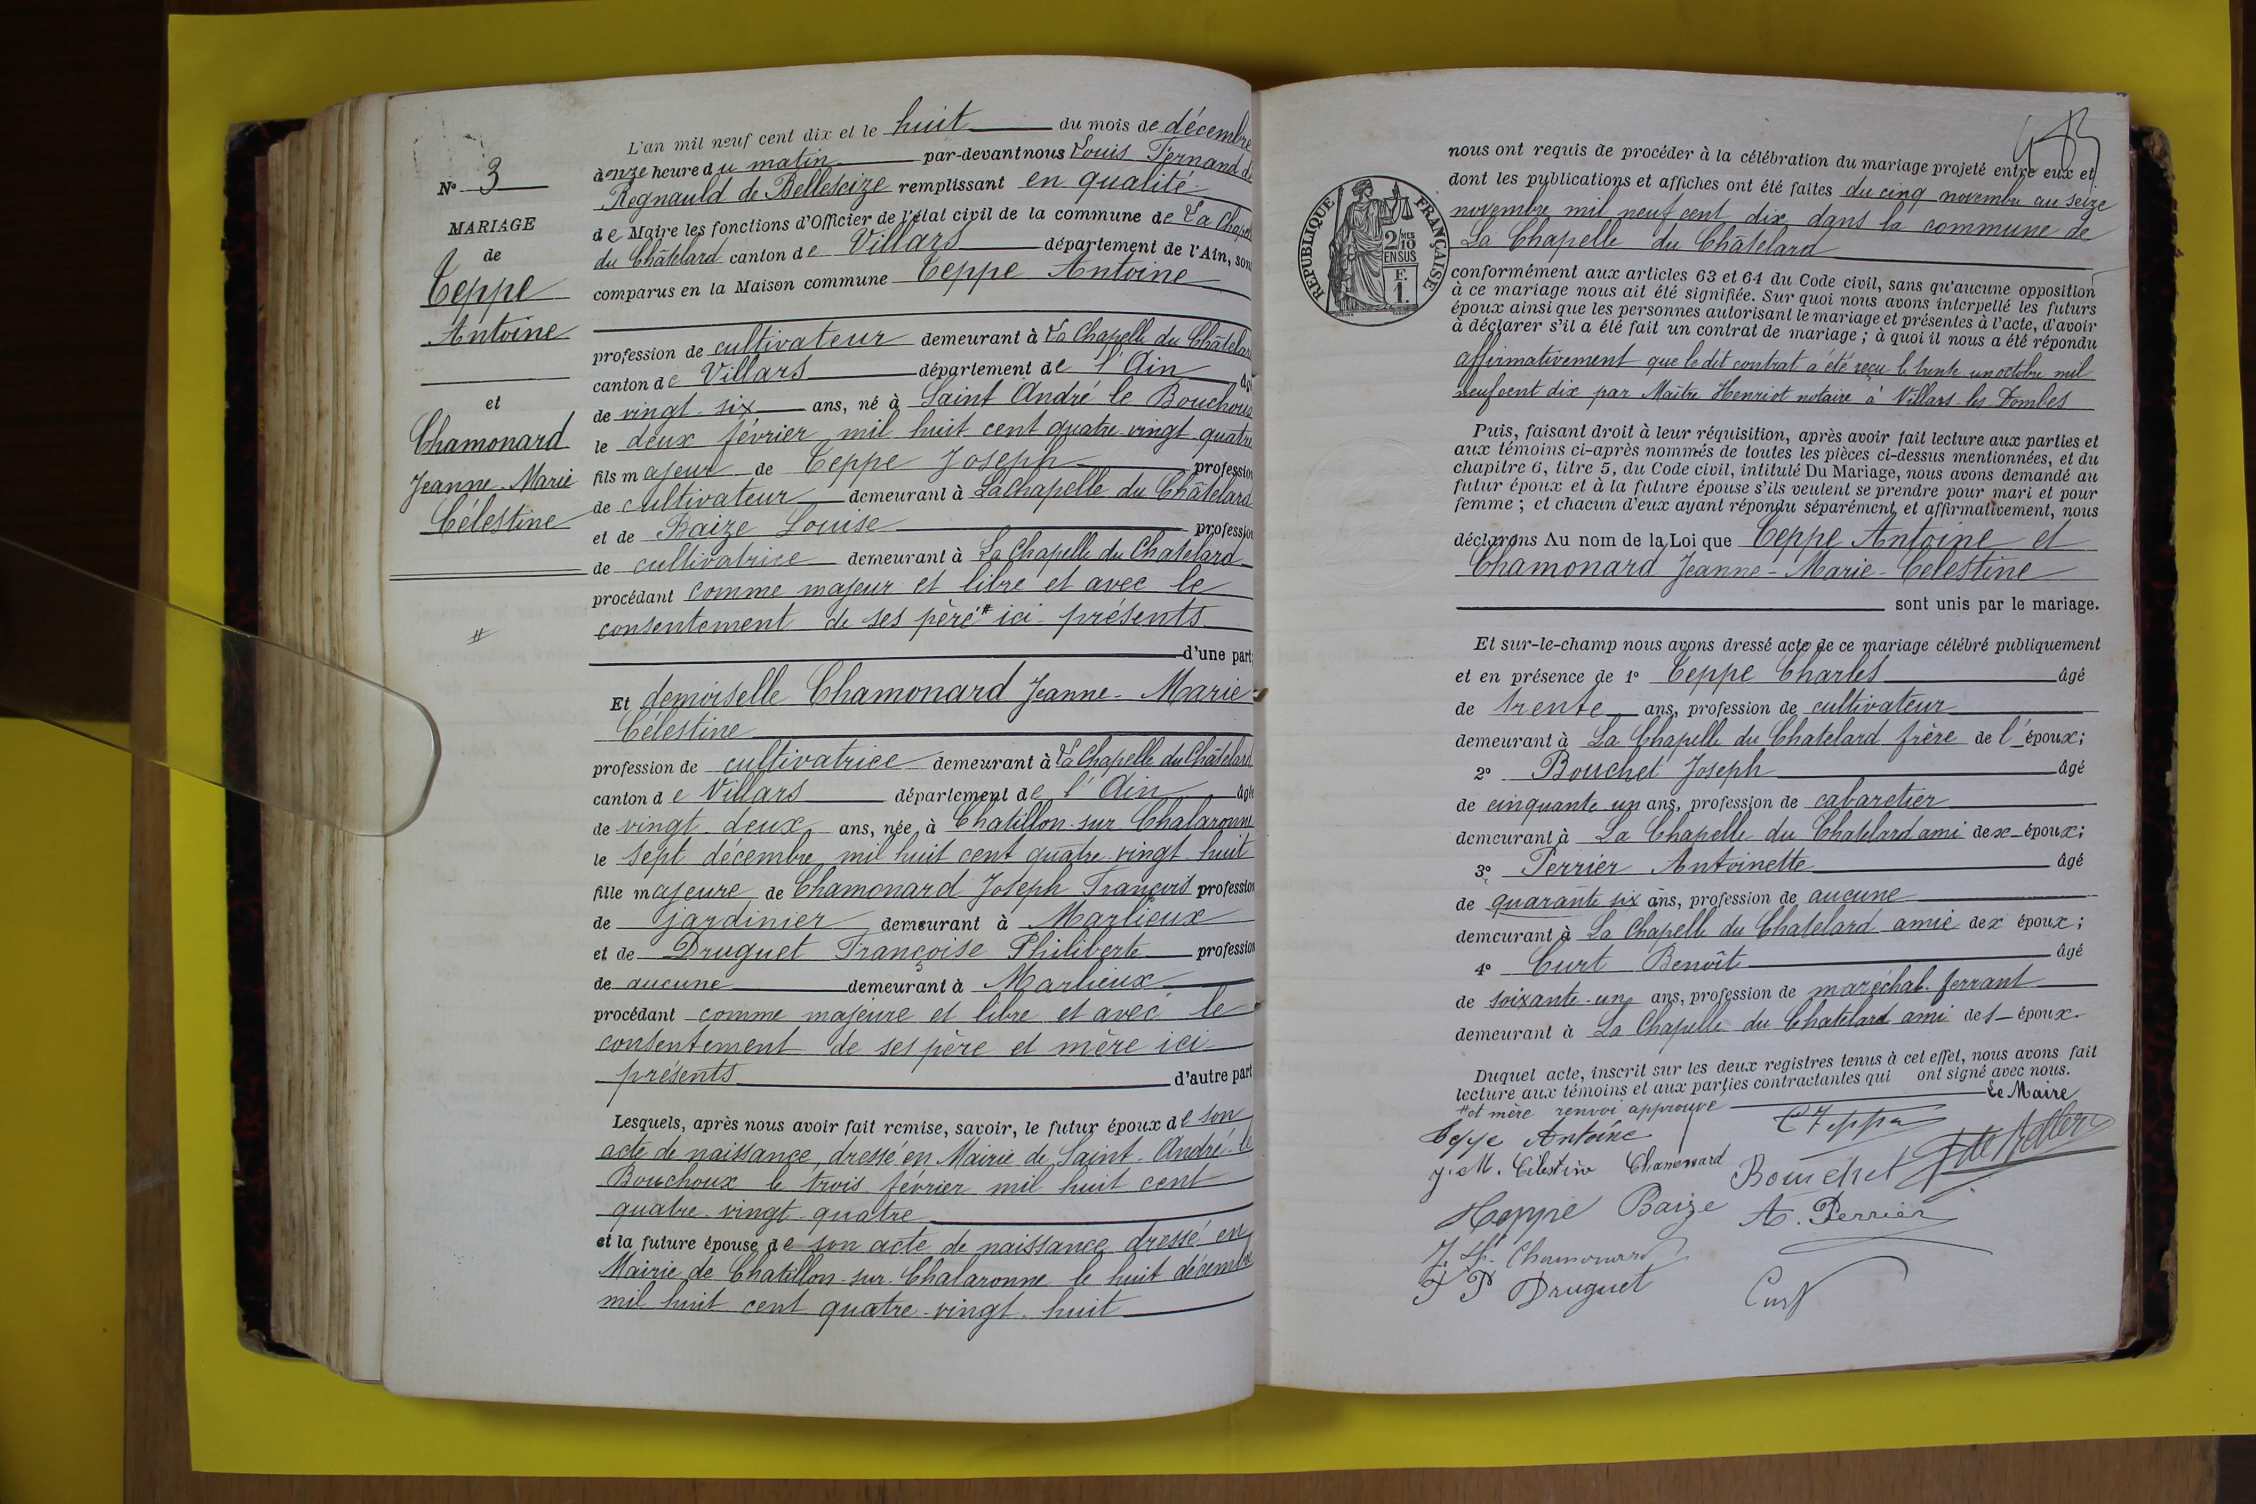 N° 3
MARIAGE
de
Teppe
Antoine
et
Chamonard
Jeanne-Marie
Célestine
#
L'an mil neuf cent dix et le huit du mois de décembre
à onze heure du matin par-devant nous Louis Fernand de
Regnauld de Bellescize remplissant en qualité
de Maire les fonctions d'Officier de l'état civil de la commune de La Chapelle
du Châtelard canton de Villars département de l'Ain, sont
comparus en la Maison commune Teppe Antoine
profession de cultivateur demeurant à La Chapelle du Châtelard
canton de Villars département de l'Ain âgé
de vingt-six ans, né à Saint André le Bouchoux
le deux février mil huit cent quatre vingt quatre
fils majeur de Teppe Joseph profession
de cultivateur demeurant à La Chapelle du Châtelard
et de Baize Louise profession
de cultivatrice demeurant à La Chapelle du Chatelard
procédant comme majeur et libre et avec le
consentement de ses père # ici présents
d'une part
Et demoiselle Chamonard Jeanne-Marie-
Célestine
profession de cultivatrice demeurant à La Chapelle du Châtelard
canton de Villars département de l'Ain âgée
de vingt-deux ans, née à Chatillon-sur-Chalaronne
le sept décembre mil huit cent quatre-vingt huit
fille majeure de Chamonard Joseph François profession
de jardinier demeurant à Marlieux
et de Druguet Françoise Philiberte profession
de aucune demeurant à Marlieux
procédant comme majeure et libre et avec le
consentement de ses père et mère ici
présents d'autre part
Lesquels, après nous avoir fait remise, savoir, le futur époux de son
acte de naissance dressé en Mairie de Saint-André-le
Bouchoux le trois février mil huit cent
quatre-vingt-quatre
et la future épouse de son acte de naissance dressé en
Mairie de Chatillon-sur-Chalaronne le huit décembre
mil huit cent quatre-vingt-huit
RÉPUBLIQUE FRANÇAISE
2/10 MES
EN SUS
F.
1.
nous ont requis de procéder à la célébration du mariage projeté entre eux et
dont les publications et affiches ont été faites du cinq novembre au seize
novembre mil neuf cent dix dans la commune de
La Chapelle du Châtelard
conformément aux articles 63 et 64 du Code civil, sans qu'aucune opposition
à ce mariage nous ait été signifiée. Sur quoi nous avons interpellé les futurs
époux ainsi que les personnes autorisant le mariage et présentes à l'acte, d'avoir
à déclarer s'il a été fait un contrat de mariage ; à quoi il nous a été répondu
affirmativement que le dit contrat a été reçu le trente un octobre mil
neuf cent dix par Maître Henriot notaire à Villars-les Dombes
Puis, faisant droit à leur réquisition, après avoir fait lecture aux parties et
aux témoins ci-après nommés de toutes les pièces ci-dessus mentionnées, et du
chapitre 6, titre 5, du Code civil, intitulé Du Mariage, nous avons demandé au
futur époux et à la future épouse s'ils veulent se prendre pour mari et pour
femme ; et chacun d'eux ayant répondu séparément et affirmativement, nous
déclarons Au nom de la Loi que Teppe Antoine et
Chamonard Jeanne-Marie-Célestine
sont unis par le mariage.
Et sur-le-champ nous avons dressé acte de ce mariage célébré publiquement
et en présence de 1° Teppe Charles âgé
de trente ans, profession de cultivateur
demeurant à La Chapelle du Chatelard frère de l'époux ;
2° Bouchet Joseph âgé
de cinquante un ans, profession de cabaretier
demeurant à La Chapelle du Chatelard ami dex époux ;
3° Perrier Antoinette âgé
de quarante six ans, profession de aucune
demeurant à La Chapelle du Chatelard amie dex époux ;
4° Curt Benoît âgé
de soixante-un ans, profession de maréchal-ferrant
demeurant à La Chapelle du Chatelard ami des époux.
Duquel acte, inscrit sur les deux registres tenus à cet effet, nous avons fait
lecture aux témoins et aux parties contractantes qui ont signé avec nous.
# et mère renvoi approuvé Le Maire
Teppe Antoine C Teppe
J. M. Célestine Chamonard Bouchet
Teppe Baize A. Perrier
J. F. Chamonard
F P Druguet Curt